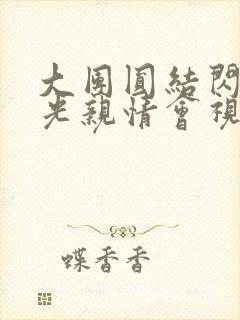 大團圓結閃
光親情會視
蝶香香